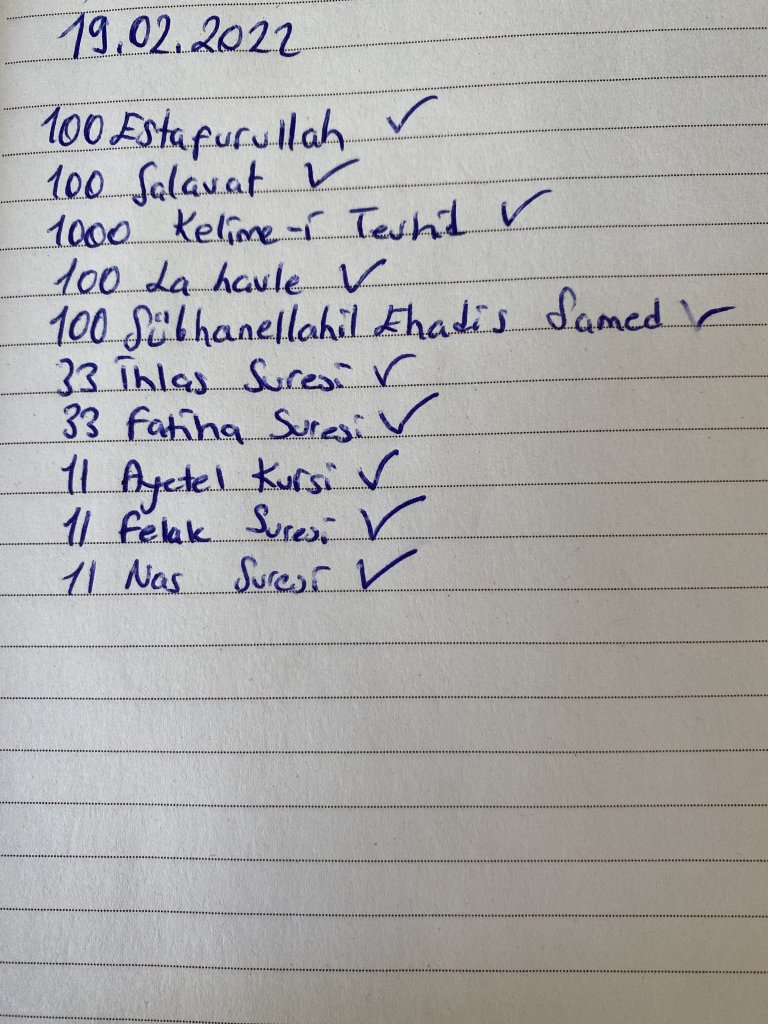 19.02.2022
100 Estafurullah ✓
100 Salavat ✓
1000 Kelime-i Tevhid ✓
100 La havle ✓
100 Sübhanellahil Ehadis Samed ✓
33 İhlas Suresi ✓
33 Fatiha Suresi ✓
11 Ayetel Kursi ✓
11 Felak Suresi ✓
11 Nas Suresi ✓